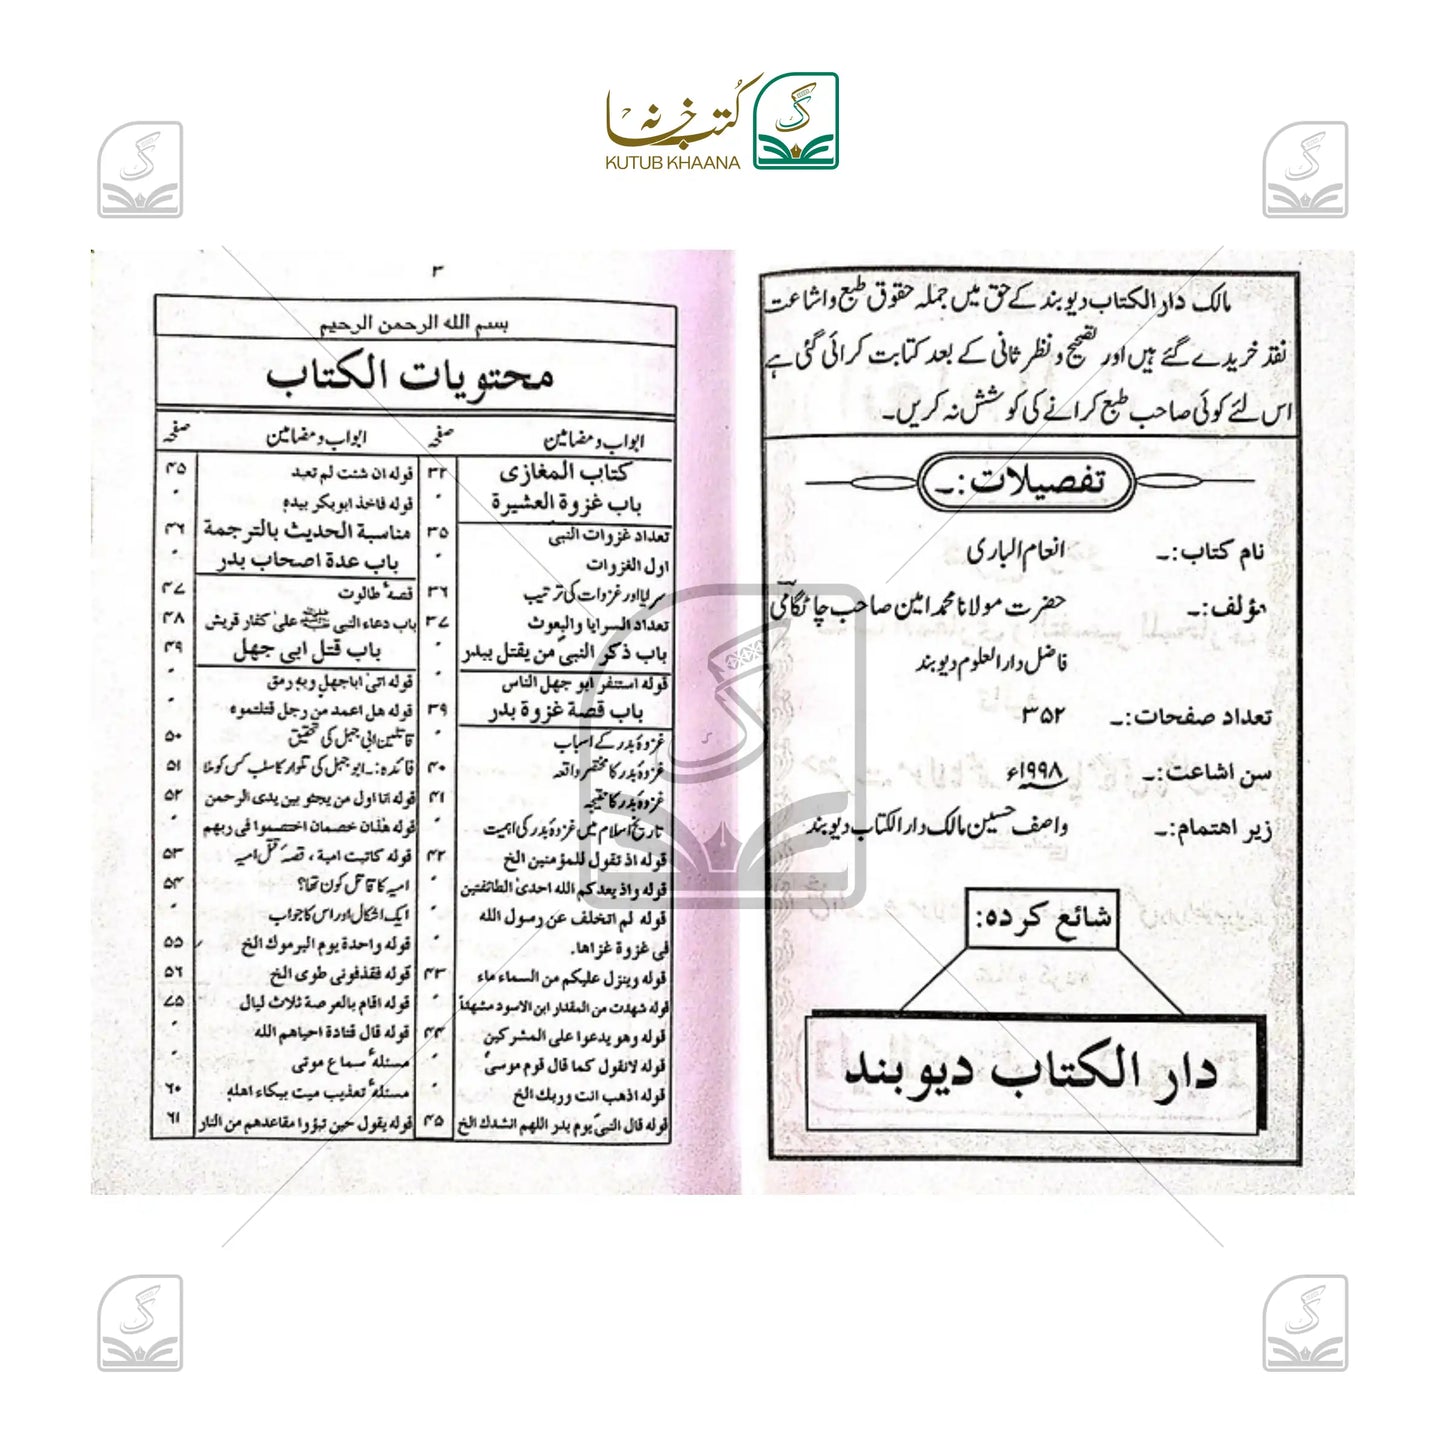 کُتب خانہ
KUTUB KHAANA
مالک دار الکتاب دیوبند کے حق میں جملہ حقوق طبع و اشاعت
نقد خریدے گئے ہیں اور تصحیح و نظر ثانی کے بعد کتابت کرائی گئی ہے
اس لئے کوئی صاحب طبع کرانے کی کوشش نہ کریں۔
تفصیلات:۔
نام کتاب:۔ انعام الباری
مؤلف:۔ حضرت مولانا محمد امین صاحب چاٹگامیؒ
فاضل دار العلوم دیوبند
تعداد صفحات:۔ ۳۵۲
سن اشاعت:۔ ۱۹۹۸ء
زیر اهتمام:۔ واصف حسین مالک دار الکتاب دیوبند
شائع کردہ:
دار الکتاب دیوبند
۳
بسم الله الرحمن الرحيم
محتويات الكتاب
ابواب و مضامین صفحہ ابواب و مضامین صفحہ
کتاب المغازی ۳۲
باب غزوة العشيرة
تعداد غزوات النبی ۳۵
اول الغزوات
سرایا اور غزوات کی ترتیب ۳۶
تعداد السرايا والبعوث ۳۷
باب ذكر النبی من يقتل ببدر
قوله استنفر ابو جهل الناس
باب قصة غزوة بدر ۳۹
غزوۂ بدر کے اسباب
غزوۂ بدر کا مختصر واقعہ ۴۰
غزوۂ بدر کا نتیجہ ۴۱
تاریخ اسلام میں غزوۂ بدر کی اہمیت
قوله اذ تقول للمؤمنين الخ ۴۲
قوله واذ يعدكم الله احدى الطائفتين
قوله لم اتخلف عن رسول الله
فی غزوة غزاها.
قوله وينزل عليكم من السماء ماء ۴۳
قوله شهدت من المقداد ابن الاسود مشهداً
قوله وهو يدعوا على المشركين ۴۴
قوله لانقول كما قال قوم موسىٰ
قوله اذهب انت وربك الخ
قوله قال النبی يوم بدر اللهم انشدك الخ ۴۵
قوله ان شئت لم تعبد ۴۵
قوله فاخذ ابوبكر بيده
مناسبة الحديث بالترجمة ۴۶
باب عدة اصحاب بدر
قصۂ طالوت ۴۷
باب دعاء النبی ﷺ علىٰ كفار قريش ۴۸
باب قتل ابی جهل ۴۹
قوله اتىٰ اباجهل وبه رمق
قوله هل اعمد من رجل قتلتموه
قاتلین ابی جہل کی تحقیق ۵۰
فائدہ:۔ ابو جہل کی تلوار کا سلب کس کو ملا ۵۱
قوله انا اول من يجثو بين يدی الرحمن ۵۲
قوله هٰذان خصمان اختصموا فی ربهم
قوله كاتبت امية ، قصۂ قتل امیہ ۵۳
امیہ کا قاتل کون تھا؟ ۵۴
ایک اشکال اور اس کا جواب
قوله واحدة يوم اليرموك الخ ۵۵
قوله فقذفونی طوی الخ ۵۶
قوله اقام بالعرصة ثلاث ليال ۵۷
قوله قال قتادة احياهم الله
مسئلۂ سماع موتی
مسئلۂ تعذیب میت ببكاء اهله ۶۰
قوله يقول حين تبوّوا مقاعدهم من النار ۶۱